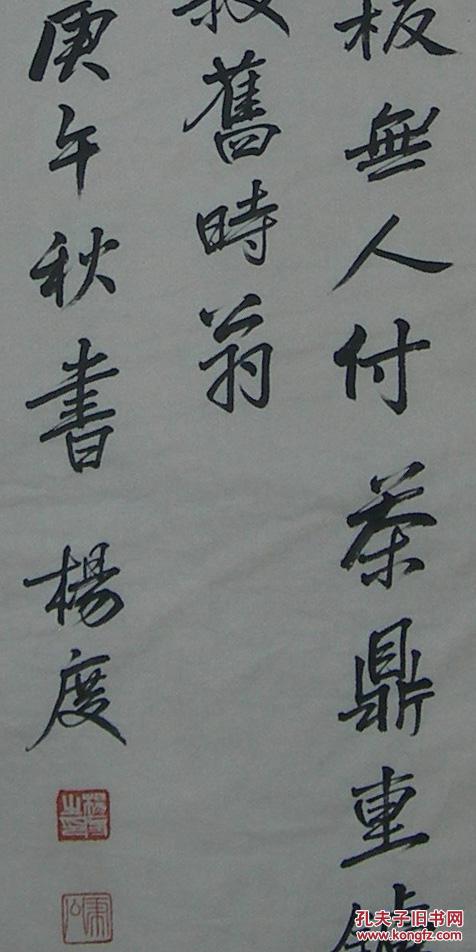 板無人付茶鼎重
舊時翁
庚午秋書 楊度
孔夫子旧书网
kongfz.com